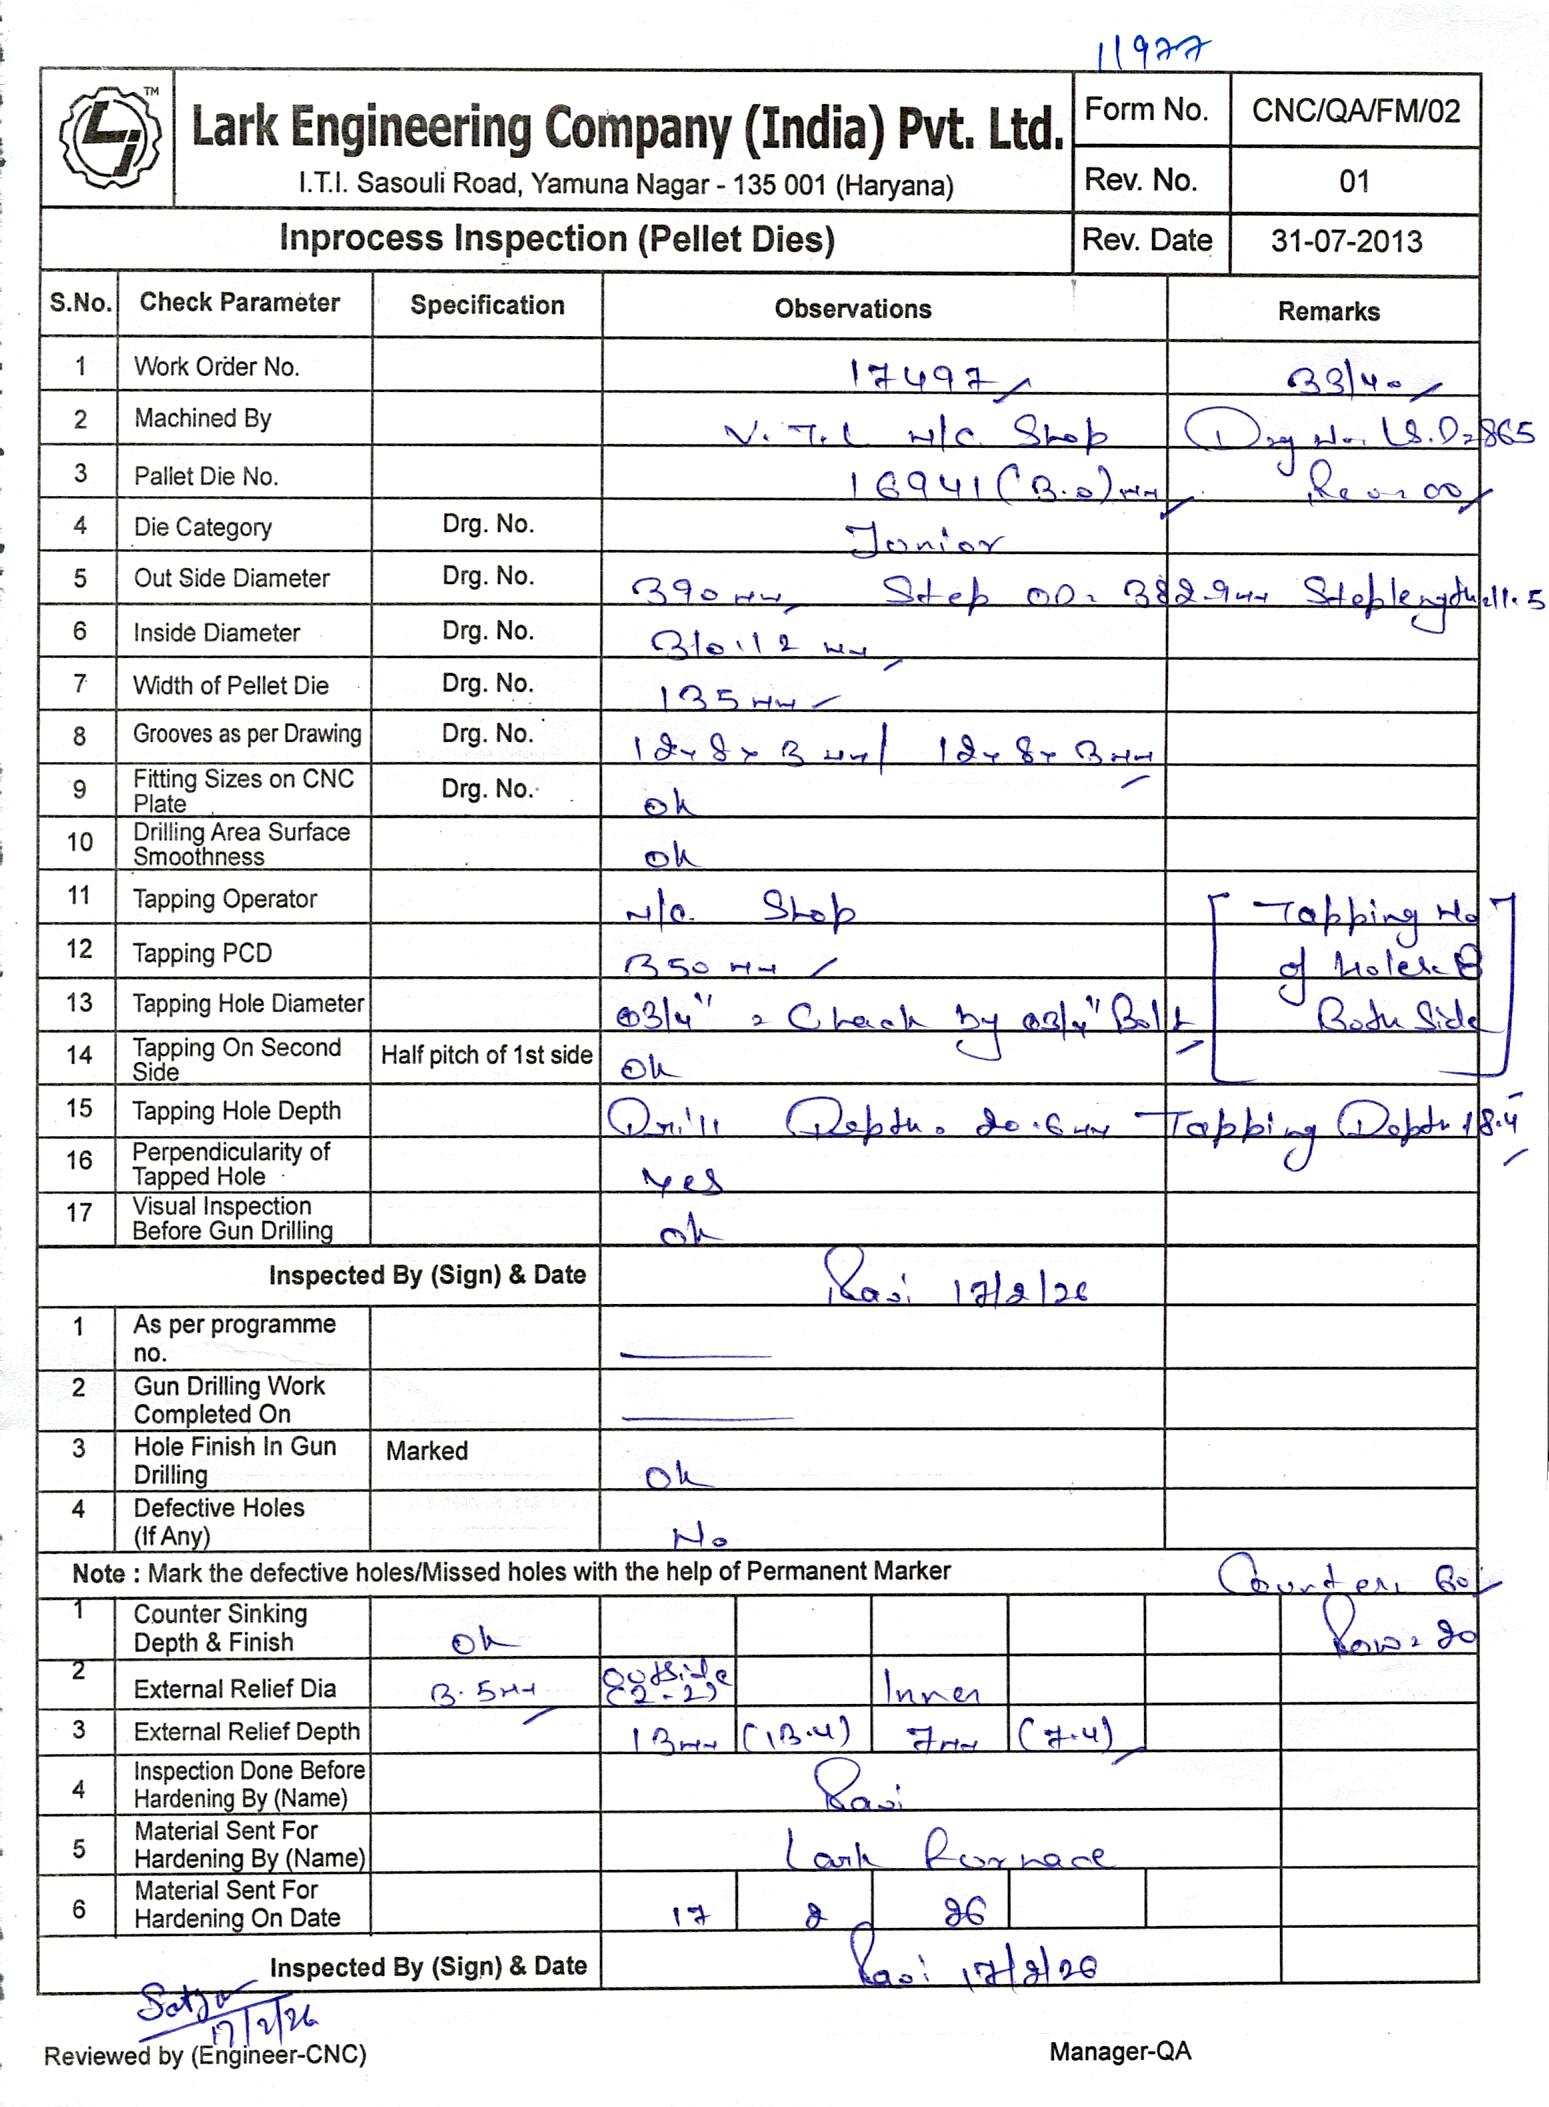 11977
LI TM
Lark Engineering Company (India) Pvt. Ltd.
I.T.I. Sasouli Road, Yamuna Nagar - 135 001 (Haryana)
Form No. CNC/QA/FM/02
Rev. No. 01
Inprocess Inspection (Pellet Dies) Rev. Date 31-07-2013
S.No. Check Parameter Specification Observations Remarks
1 Work Order No. 17497 33/40
2 Machined By V.T.L M/C Shop Drg No. LS.D=865
3 Pallet Die No. 16941 (3.0) mm Rev=00
4 Die Category Drg. No. Junior
5 Out Side Diameter Drg. No. 390 mm Step OD= 382.9mm Steplength=11.5
6 Inside Diameter Drg. No. 310.12 mm
7 Width of Pellet Die Drg. No. 135 mm
8 Grooves as per Drawing Drg. No. 12x8x3 mm/ 12x8x3mm
9 Fitting Sizes on CNC Plate Drg. No. ok
10 Drilling Area Surface Smoothness ok
11 Tapping Operator M/C. Shop [Tapping No
12 Tapping PCD 350 mm of Holes= 8
13 Tapping Hole Diameter Ø3/4" = Check by Ø3/4" Bolt Both Side]
14 Tapping On Second Side Half pitch of 1st side Ok
15 Tapping Hole Depth Drill Depth= 20.6mm Tapping Depth 18.4
16 Perpendicularity of Tapped Hole Yes
17 Visual Inspection Before Gun Drilling ok
Inspected By (Sign) & Date Ravi 17/2/26
1 As per programme no.
2 Gun Drilling Work Completed On
3 Hole Finish In Gun Drilling Marked Ok
4 Defective Holes (If Any) No
Note : Mark the defective holes/Missed holes with the help of Permanent Marker Counter= 60°
1 Counter Sinking Depth & Finish ok Row=20
2 External Relief Dia 3.5mm Outside (2-2) Inner
3 External Relief Depth 13mm (13.4) 7mm (7.4)
4 Inspection Done Before Hardening By (Name) Ravi
5 Material Sent For Hardening By (Name) Lark Furnace
6 Material Sent For Hardening On Date 17 2 26
Inspected By (Sign) & Date Ravi 17/2/26
17/2/26
Reviewed by (Engineer-CNC) Manager-QA